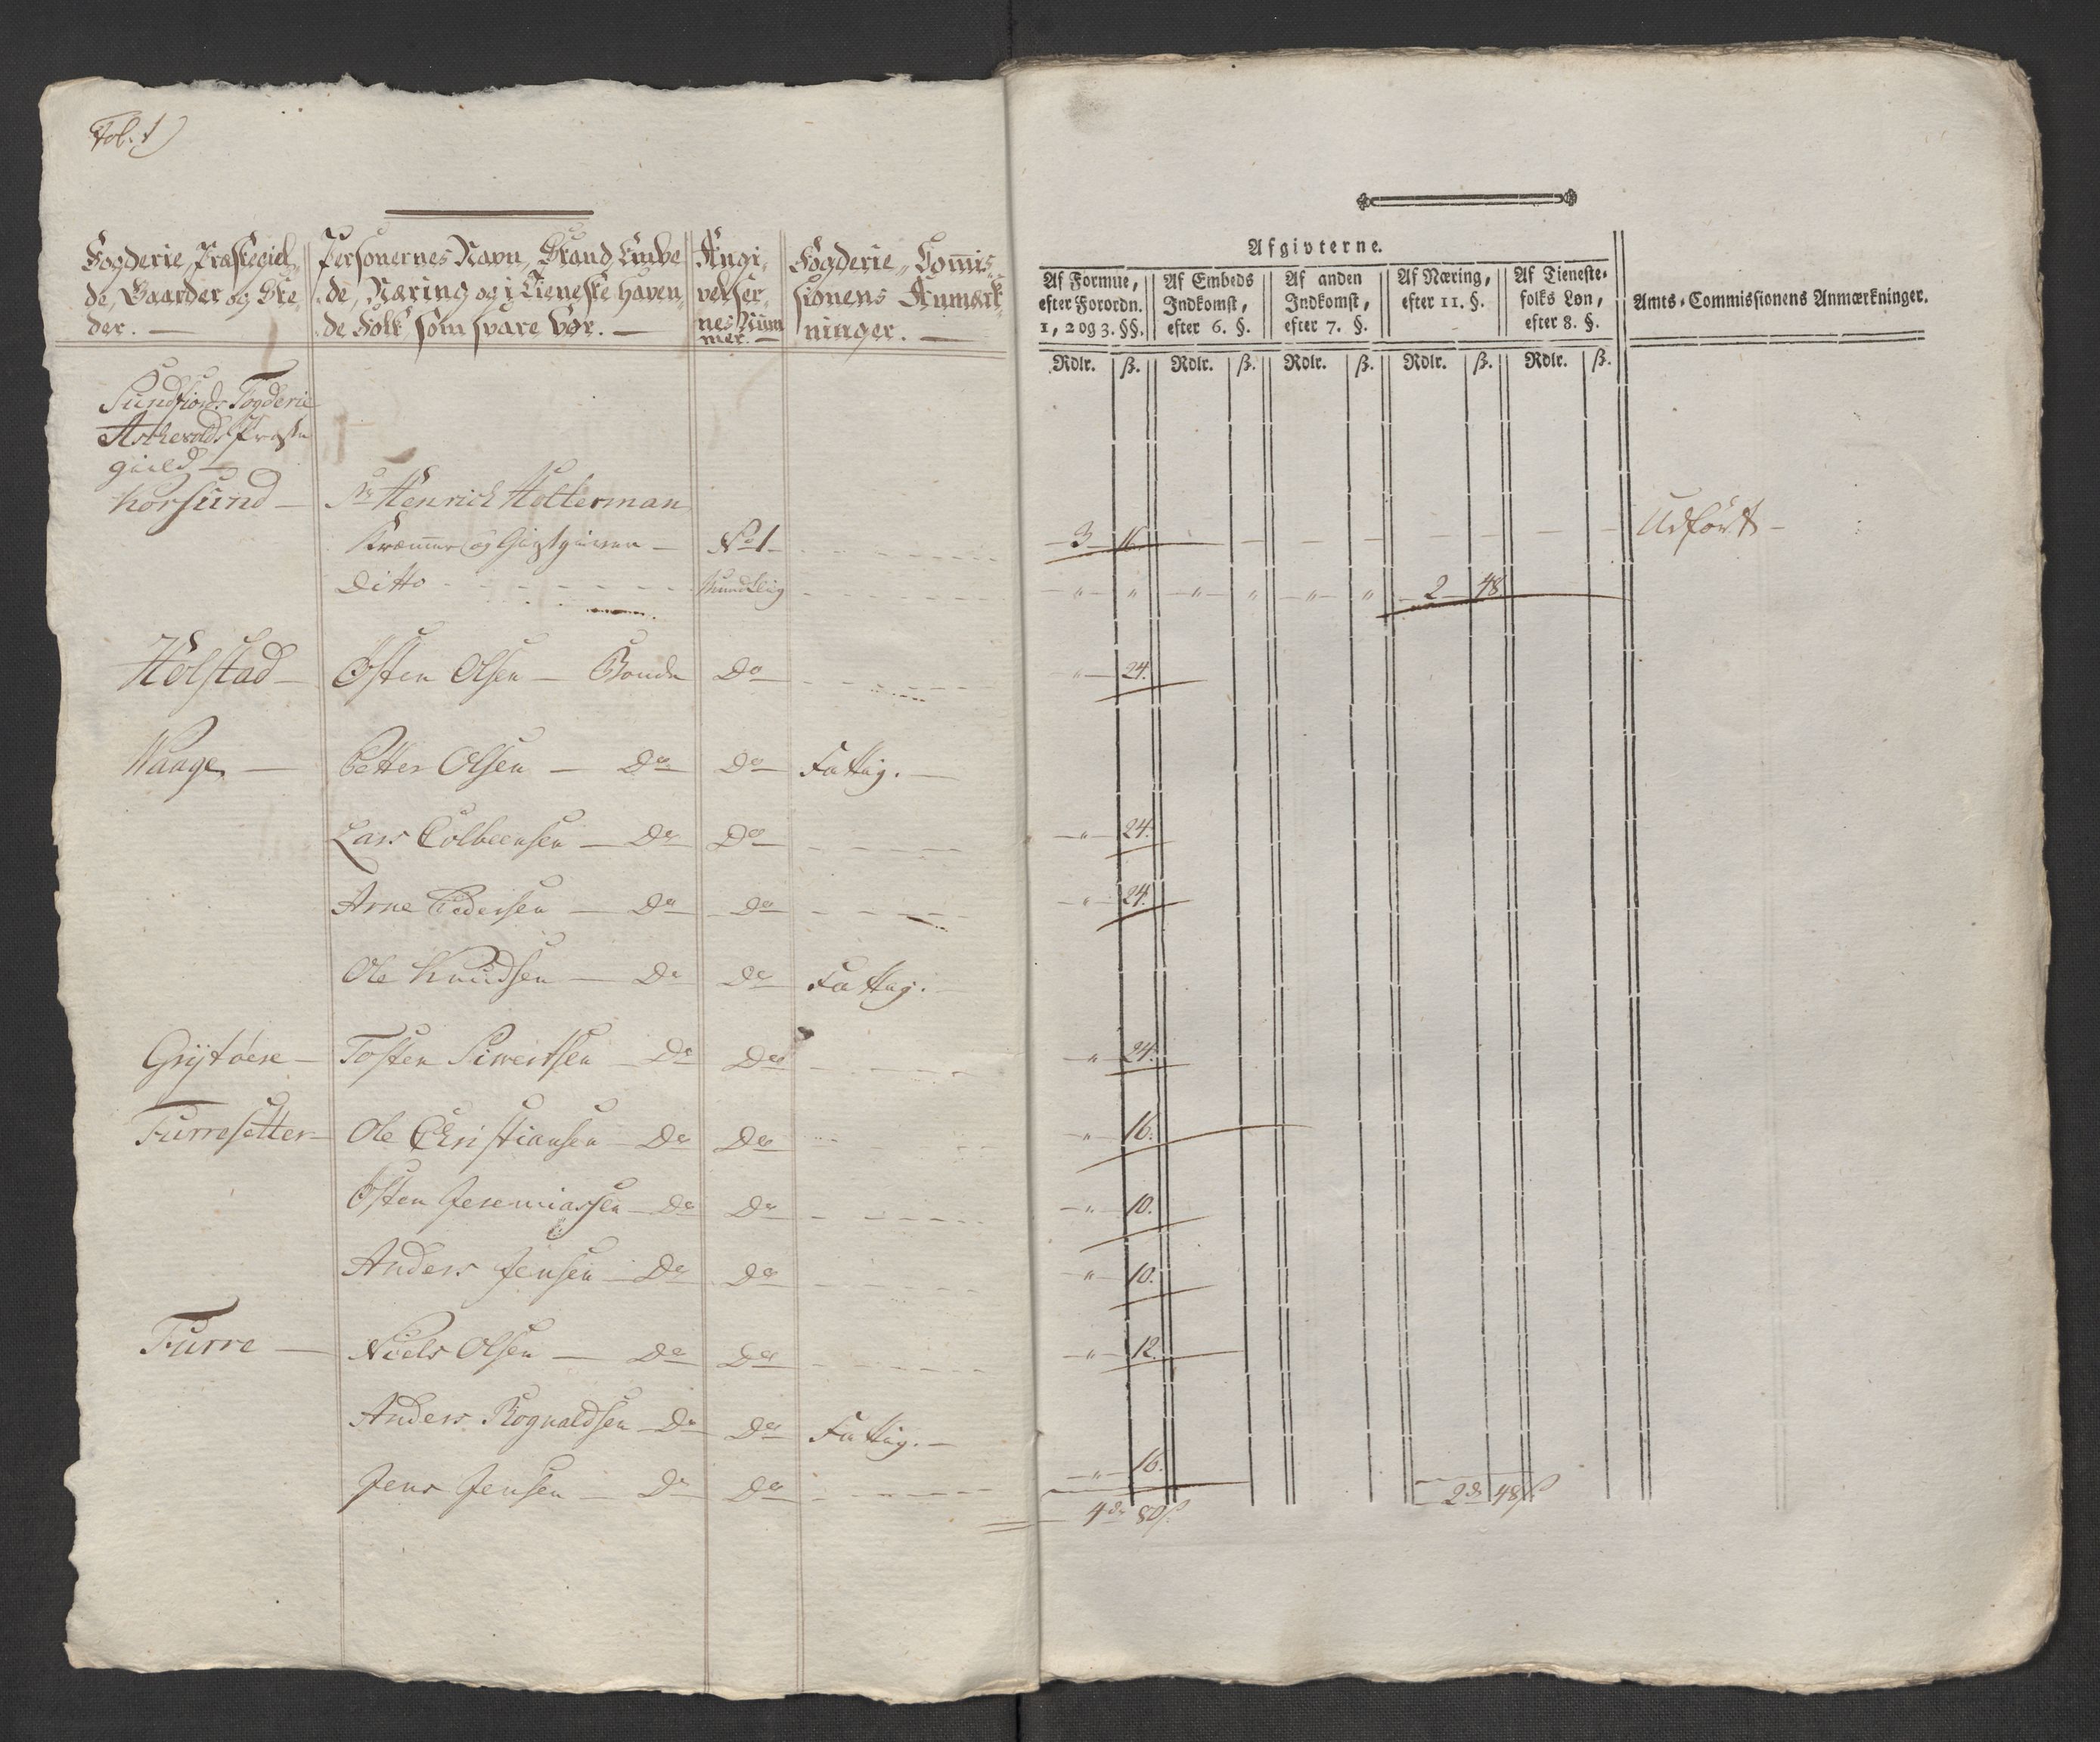 Fol. 1)
Fogderie, Præstegiel-
de, Gaarder og Ste
der. —
Personernes Navn, Stand, Embe
de, Næring og i Tieneste haven-
de Folk som svare Vor. —
Angi-
velser-
nes Num
mer. —
Fogderie-Commis-
sionens Anmærk-
ninger. —
Afgivterne.
Af Formue,
efter Forordn.
1, 2 og 3. §§.
Af Embeds
Indkomst,
efter 6. §.
Af anden
Indkomst,
efter 7. §.
Af Næring,
efter 11. §.
Af Tieneste-
folks Løn,
efter 8. §.
Amts-Commissionens Anmærkninger.
Rdlr. ß. Rdlr. ß. Rdlr. ß. Rdlr. ß. Rdlr. ß.
Sundfiords Fogderie
Askevolds Præste
gield —
Korsund — Sr Henrich Holterman
Kræmmer og Giestgiver — No 1 — 3 16. — — — — — — — Udført —
Ditto - - - Mundtlig - - - „ „ „ „ „ „ 2 48
Holstad — Østen Olsen — Bonde Do — „ 24.
Waage — Petter Olsen — Do Do — Fattig. —
Lars Colbeensen — Do Do — „ 24.
Arne Pedersen — Do Do — „ 24.
Ole Knudsen — Do Do Fattig. —
Grytøere — Tosten Siwertsen — Do Do „ 24.
Furresetter — Ole Christiansen — Do Do „ 16.
Østen Jeremiassen — Do Do „ 10.
Anders Jensen — Do Do „ 10.
Furre — Niels Olsen — Do Do „ 12.
Anders Rognaldsen — Do Do Fattig. —
Jens Jensen — Do Do „ 16.
4 d 80 ß. 2 d 48 ß